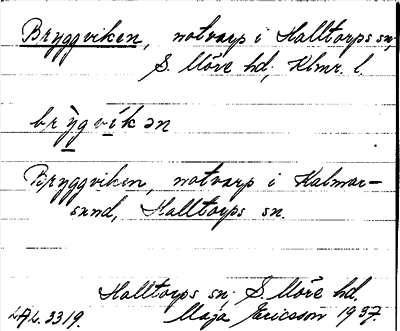 Bryggviken, notvarp i Halltorps sn,
S. Möre hd, Klmr. l.
brỳgvíkən
Bryggviken, notvarp i Kalmar-
sund, Halltorps sn.
Halltorps sn, S. Möre hd.
Maja Ericsson 1937.
LAL. 3319.